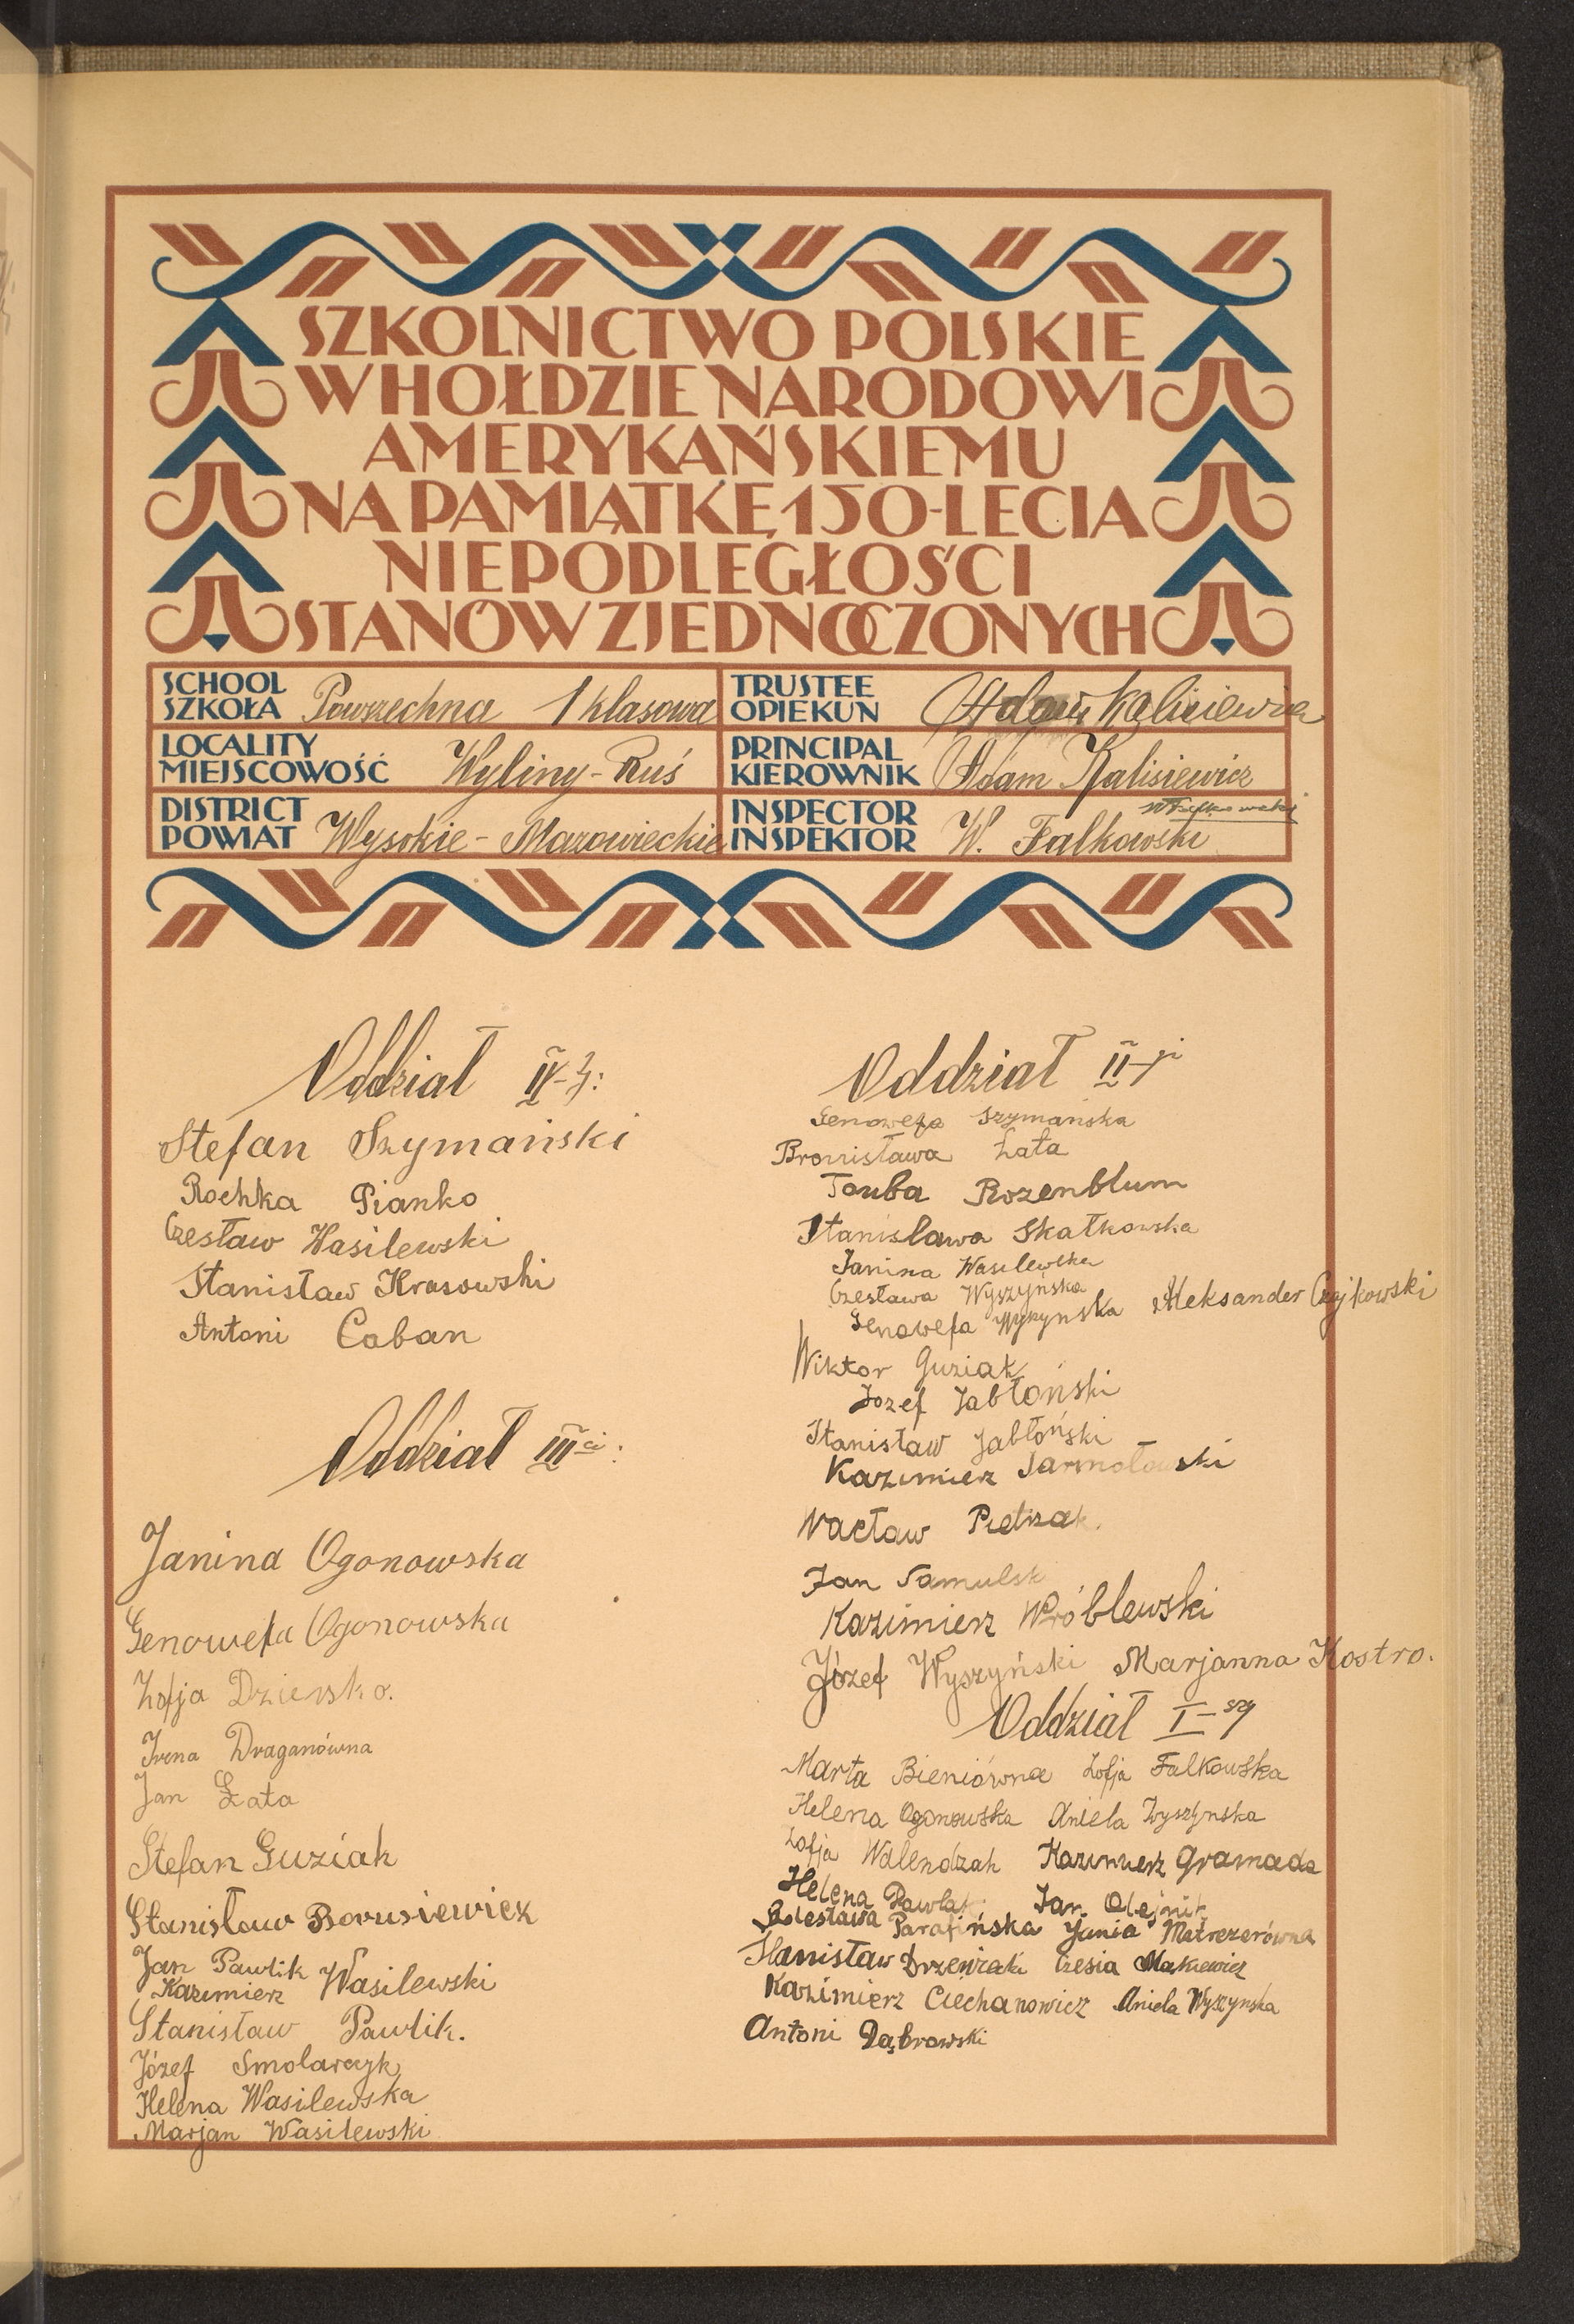 SZKOLNICTWO POLSKIE
W HOŁDZIE NARODOWI
AMERYKAŃSKIEMU
NA PAMIĄTKĘ 150-LECIA
NIEPODLEGŁOŚCI
STANÓW ZJEDNOCZONYCH
SCHOOL
SZKOŁA Powszechna 1 klasowa
TRUSTEE
OPIEKUN Adam Kalisiewicz
LOCALITY
MIEJSCOWOŚĆ Wyliny-Ruś
PRINCIPAL
KIEROWNIK Adam Kalisiewicz
DISTRICT
POWIAT Wysokie-Mazowieckie
INSPECTOR
INSPEKTOR W. Falkowski
WFalkowski
Oddział IV-ty:
Stefan Szymański
Rochka Pianko
Czesław Wasilewski
Stanisław Krasowski
Antoni Caban
Oddział III-ci:
Janina Ogonowska
Genowefa Ogonowska
Zofja
Irena Draganówna
Jan Łata
Stefan Guziak
Stanisław Borusiewicz
Jan Pawlik
Kazimierz Wasilewski
Stanisław Pawlik.
Józef Smolarczyk
Helena Wasilewska
Marjan Wasilewski
Oddział II-gi
Genowefa Szymańska
Bronisława Łata
Touba Rozenblum
Stanisława Skałkowska
Janina Wasilewska
Czesława Wyszyńska
Genowefa Wyszynska Aleksander Czajkowski
Wiktor Guziak
Jozef Jabłoński
Stanisław Jabłoński
Kazimierz Jarmołowski
Wacław Pietrzak.
Jan Samulsk
Kazimierz Wróblewski
Józef Wyszyński Marjanna Kostro.
Oddział I-szy
Marta Bieniówna Zofja Falkowska
Helena Ogonowska Aniela Wyszynska
Zofja Walendzak Kazimierz Gramada
Helena Pawlak Jan Olejnik
Bolesława Parafińska Jania
Stanisław Czesia Makiewicz
Kazimierz Ciechanowicz Aniela Wyszynska
Antoni Dąbrowski